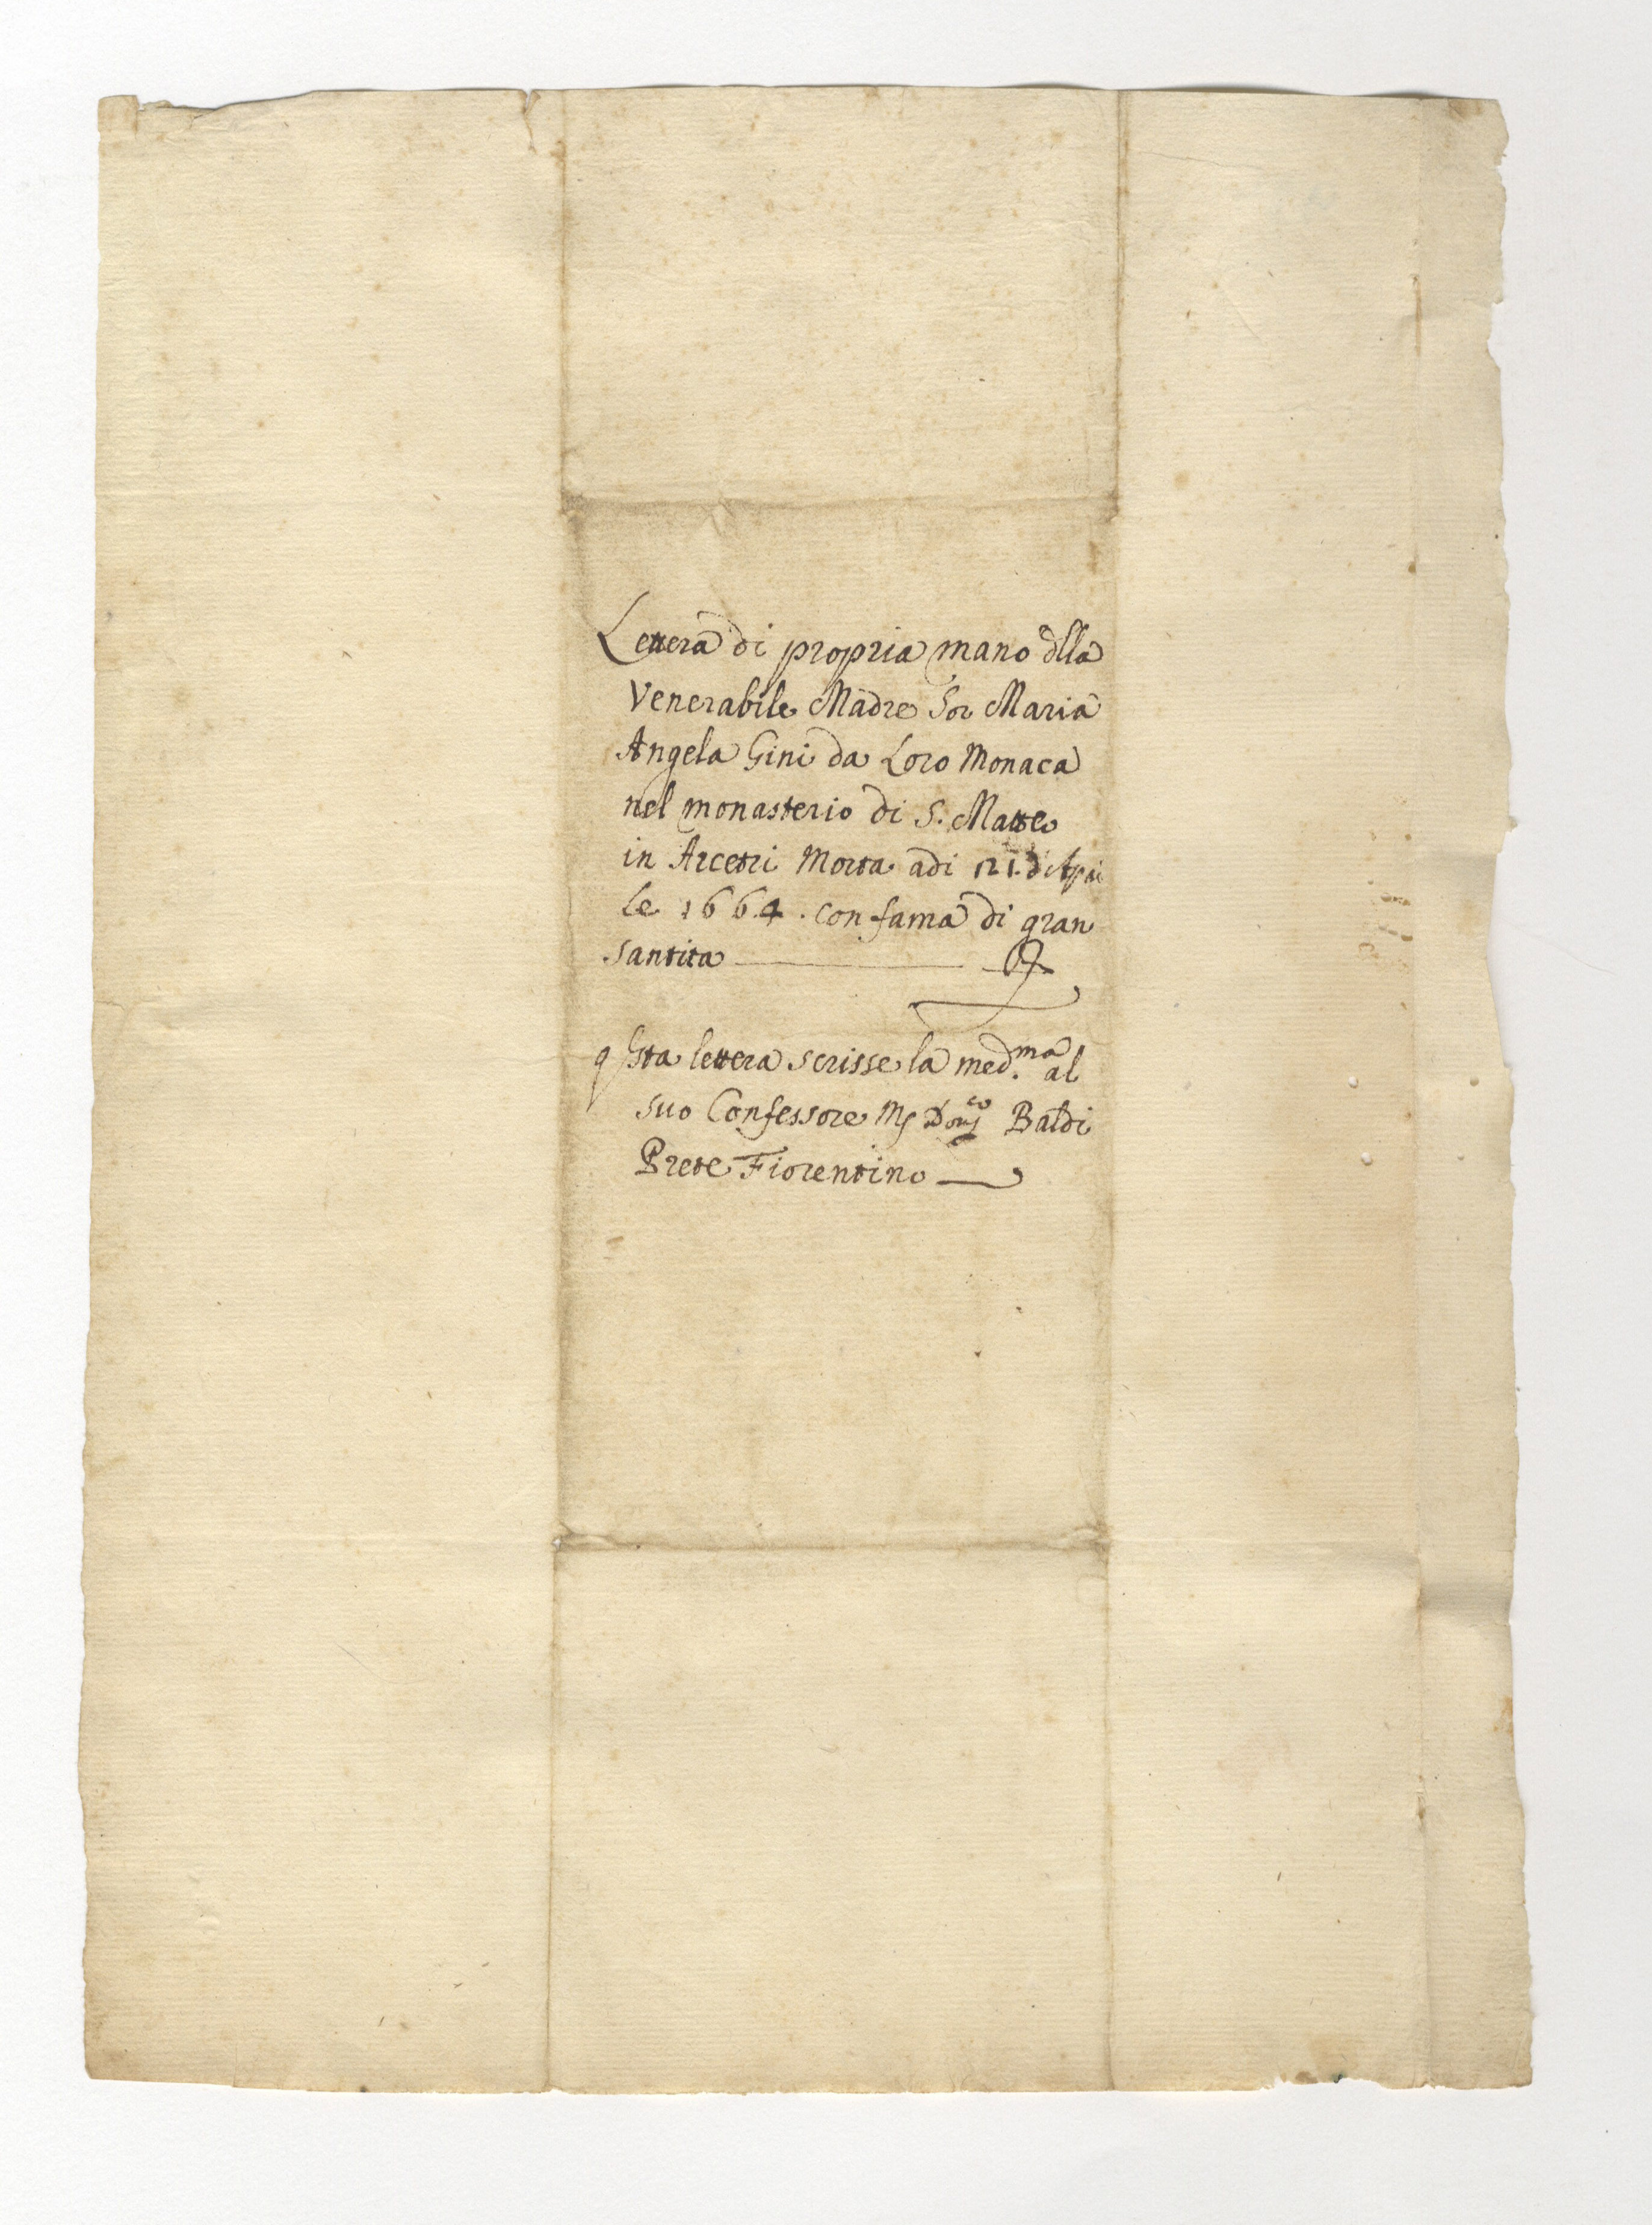 Lettera di propria mano dlla
Venerabile Madre Sor Maria
Angela Gini da Loro Monaca
nel monasterio di S. Matteo
in Arcetri Morta adi 121. di Apri
le 1664. con fama di gran
santita
qsta lettera scrisse la med.ma al
suo Confessore Baldi
Prete Fiorentino